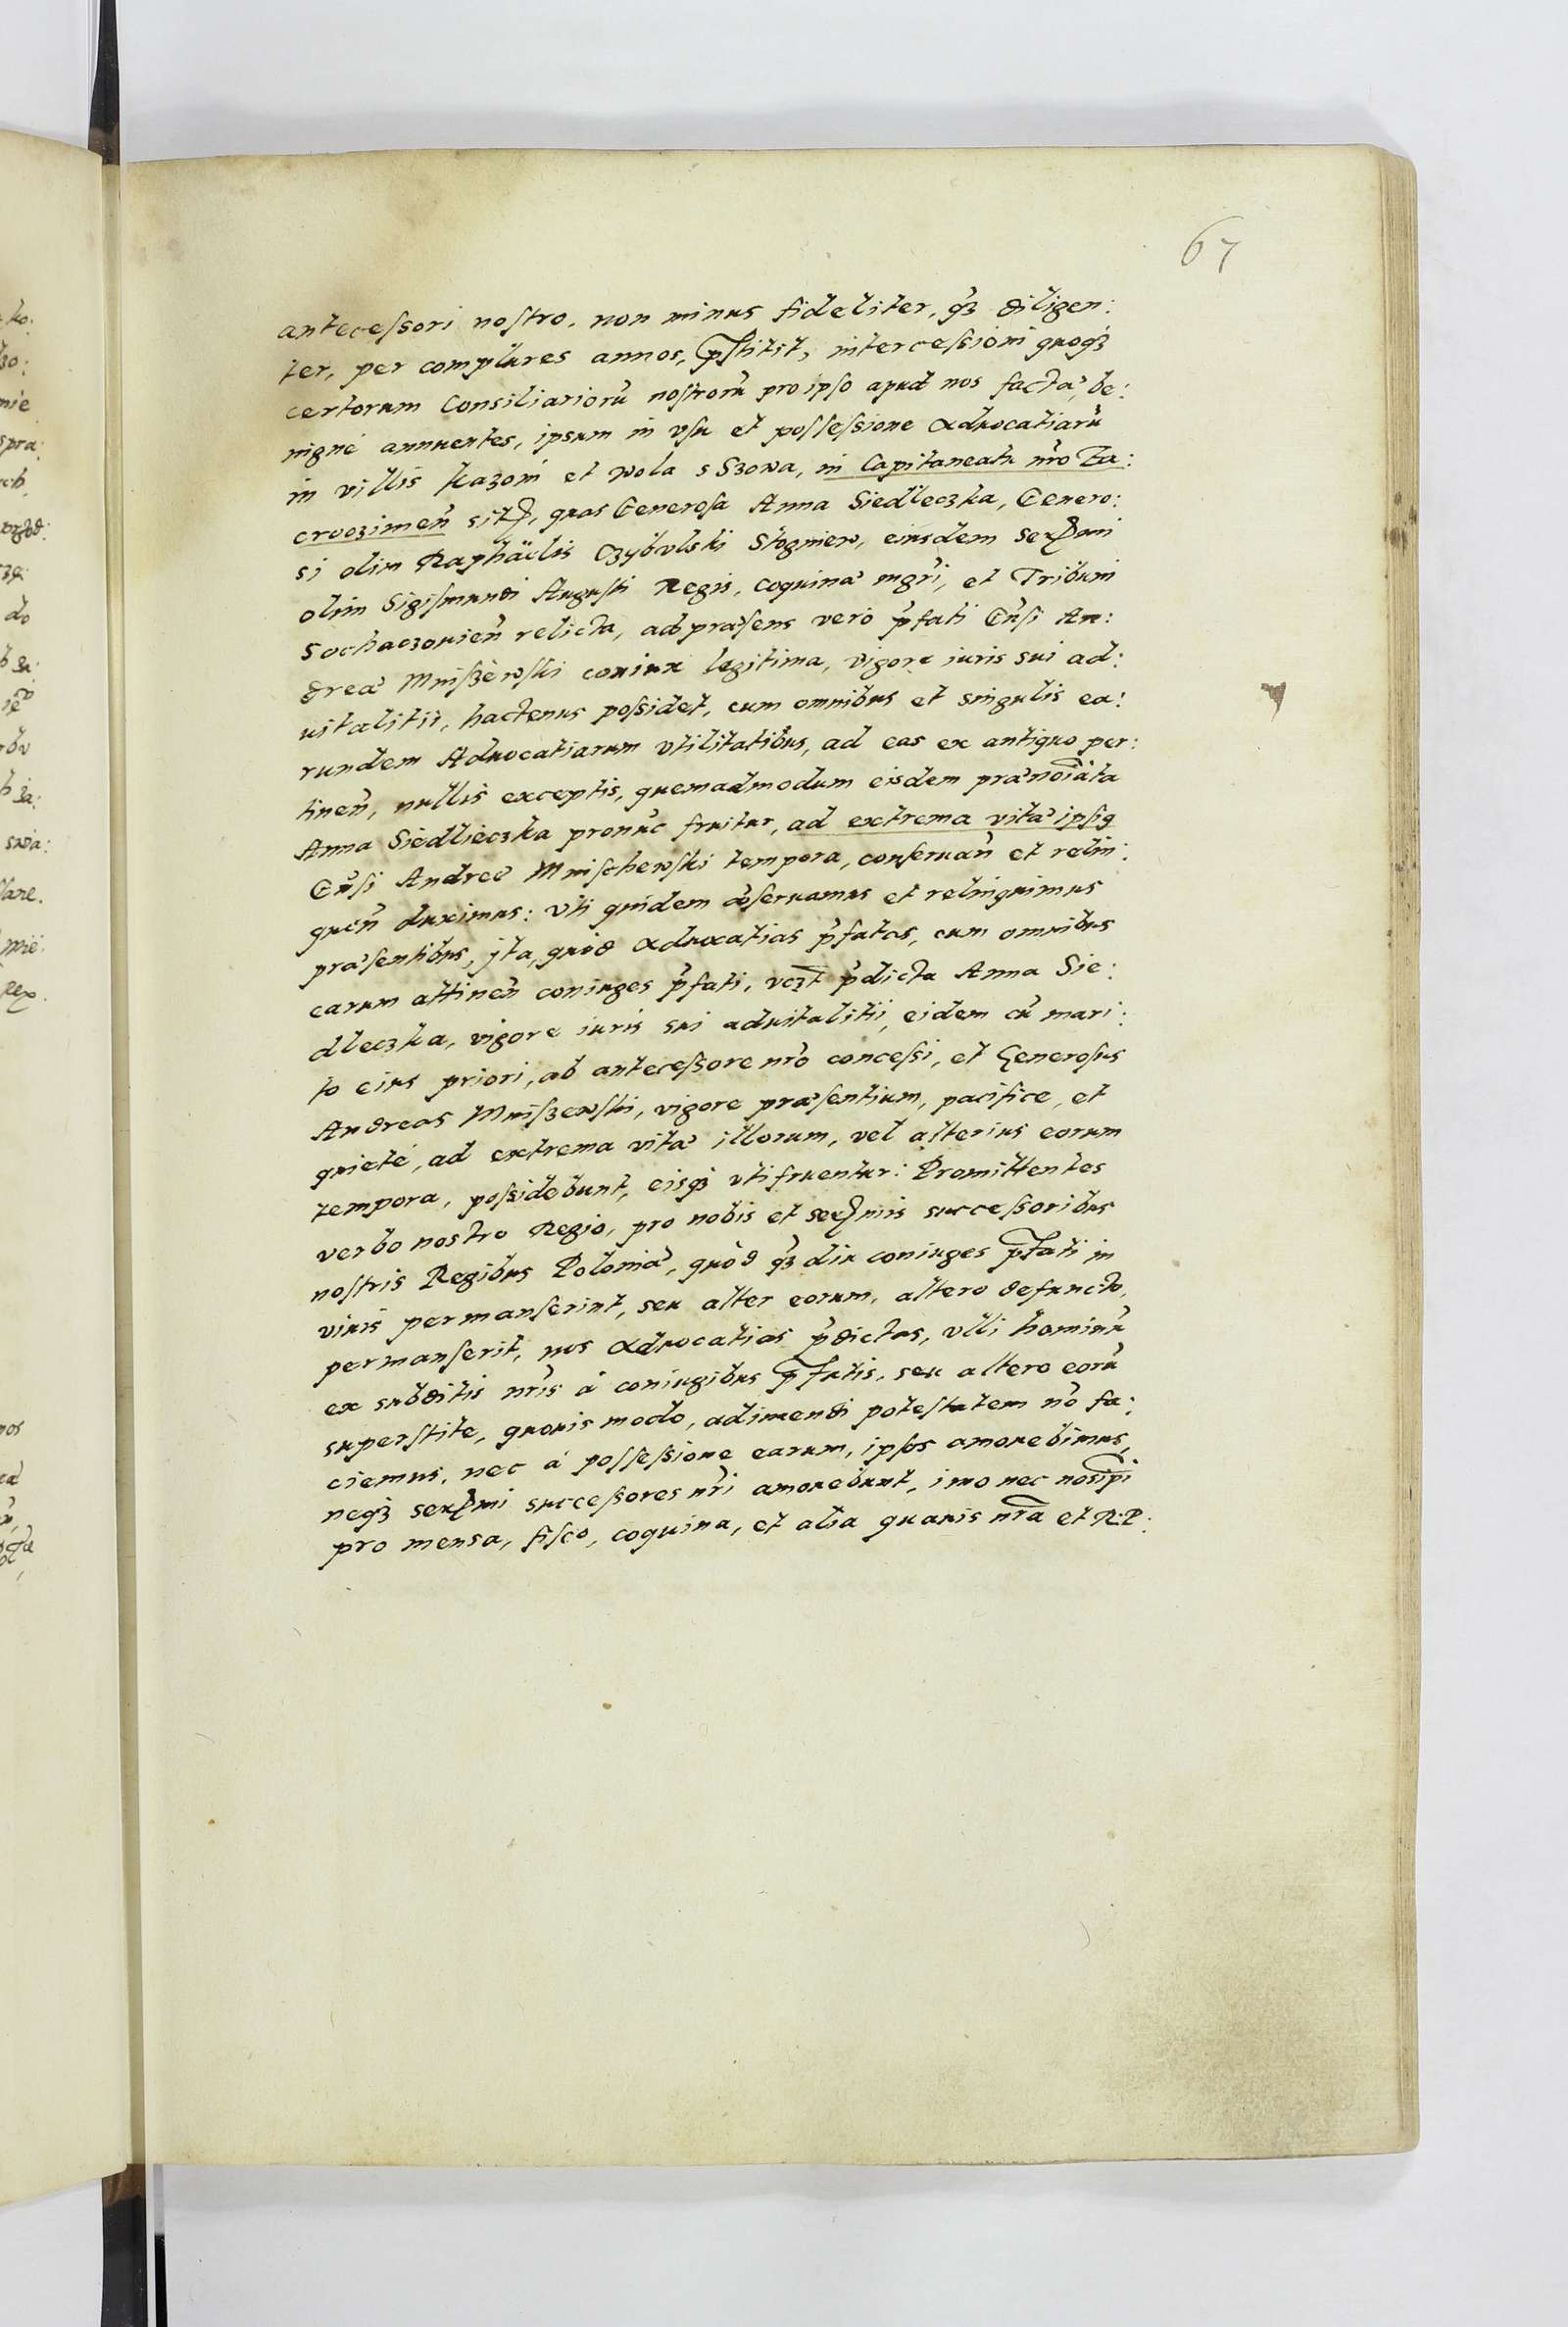 67
anteceſsori noſtro, non minus fideliter, q̃ȝ diligen:
ter, per complures annos, p̃ſtitit, interceſsioni quoqȝ
certorum Consiliariorũ noſtrorũ pro ipso apud nos facta, be:
nignè annuentes, ipsum in vſu et poſseſsione aduocatiarũ
in villis Kazoni et Wola sSzowa, in Capitaneatu nr̃o Za:
croczimeñ sitȩ, quas Generoſa Anna Siedleczka, Genero:
si olim Raphäelis Czÿbulski Stogniew, eiusdem Serẽmi
olim Sigiſmundi Auguſti Regis, coquinæ mgr̃i, et Tribuni
Sochaczouieñ relicta, ad præſens verò p̃fati Gñsi An:
dreæ Mniſzewski coniux legitima, vigore iuris sui ad:
uitalitii, hactenus poſsidet, cum omnibus et singulis ea:
rundem Aduocatiarum vtilitatibus, ad eas ex antiquo per:
tineñ, nullis exceptis, quemadmodum eisdem prænoĩata
Anna Siedlieczka pronũc fruitur, ad extrema vitæ ipſiꝗ
Gñsi Andreæ Mniſchewski tempora, conſeruañ et relin:
queñ duximus: vti quidem cõſeruamus et relinquimus
præſentibus, jta, quòd aduocatias p̃fatas, cum omnibus
earum attineñ coniuges p̃fati, vcȝt p̃dicta Anna Sie:
dleczka, vigore iuris sui aduitalitii, eidem cũ mari:
to eius priori, ab anteceſsore nr̃o conceſsi, et Generoſus
Andreas Mniſzewski, vigore præſentium, pacifice, et
quietè, ad extrema vitæ illorum, vel alterius eorum
tempora, poſsidebunt, eisqȝ vtifruentur: Promittentes
verbo nostro Regio, pro nobis et serẽmis succeſsoribus
noſtris Regibus Poloniæ, quòd q̃ȝ diu coniuges p̃fati in
viuis permanſerint, seu alter eorum, altero defuncto,
permanſerit, nos aduocatias p̃dictas, vlli hominũ
ex subditis nr̃is à coniugibus p̃fatis, seu altero eorũ
superſtite, quouis modo, adimendi poteſtatem nõ fa:
ciemus, nec à poſseſsione earum, ipſos amouebimus,
neqȝ serẽmi succeſsores nr̃i amouebunt, imo nec nosip̃i
pro mensa, fiſco, coquina, et alia quauis nr̃a et R:P: